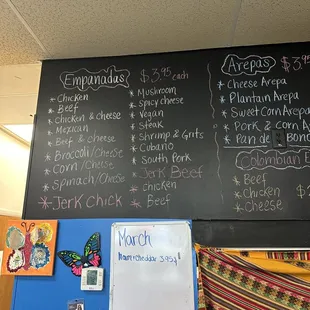 Empanadas $3.95 cash
* Chicken
* Beef
* Chicken & cheese
* Mexican
* Beef & cheese
* Broccoli/cheese
* Corn /cheese
* Spinach/cheese
* Jerk Chick
* Mushroom
* Spicy cheese
* Vegan
* Steak
* Shrimp & Grits
* Cubano
* South Pork
* Jerk Beef
* chicken
* Beef
Arepas $3.
* Cheese Arepa
* Plantain Arepa
* Sweet Corn Arepa
* Pork & corn A
* Pan de Bon
Colombian E
* Beef
* Chicken
* Cheese
March
cheddar 3.95